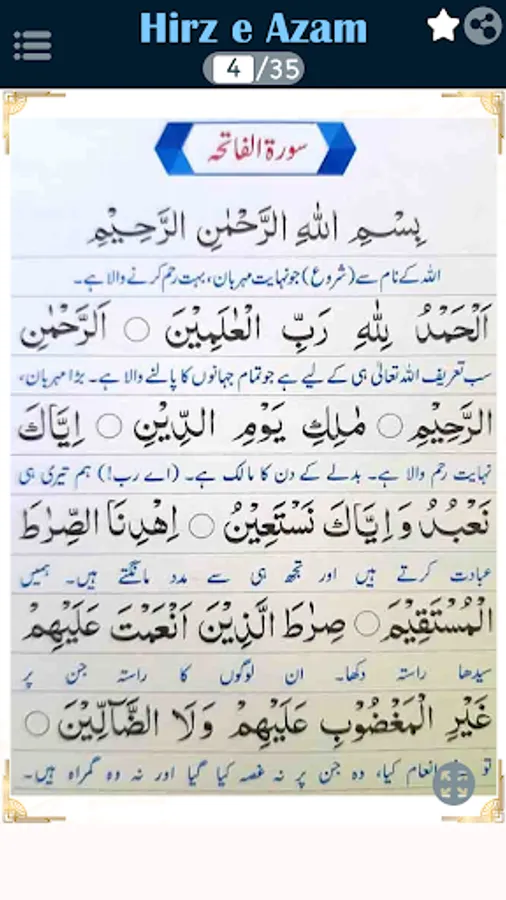 Hirz e Azam
4 /35
سورة الفاتحہ
بِسْمِ اللهِ الرَّحْمٰنِ الرَّحِيْمِ
اللہ کے نام سے (شروع) جو نہایت مہربان، بہت رحم کرنے والا ہے۔
اَلْحَمْدُ لِلّٰهِ رَبِّ الْعٰلَمِيْنَ ○ الرَّحْمٰنِ
سب تعریف اللہ تعالیٰ ہی کے لیے ہے جو تمام جہانوں کا پالنے والا ہے۔ بڑا مہربان،
الرَّحِيْمِ ○ مٰلِكِ يَوْمِ الدِّيْنِ ○ اِيَّاكَ
نہایت رحم والا ہے۔ بدلے کے دن کا مالک ہے۔ (اے رب!) ہم تیری ہی
نَعْبُدُ وَاِيَّاكَ نَسْتَعِيْنُ ○ اِهْدِنَا الصِّرٰطَ
عبادت کرتے ہیں اور تجھ ہی سے مدد مانگتے ہیں۔ ہمیں
الْمُسْتَقِيْمَ ○ صِرٰطَ الَّذِيْنَ اَنْعَمْتَ عَلَيْهِمْ
سیدھا راستہ دکھا۔ ان لوگوں کا راستہ جن پر
غَيْرِ الْمَغْضُوْبِ عَلَيْهِمْ وَلَا الضَّآلِّيْنَ ○
تو انعام کیا، وہ جن پر نہ غصہ کیا گیا اور نہ وہ گمراہ ہیں۔